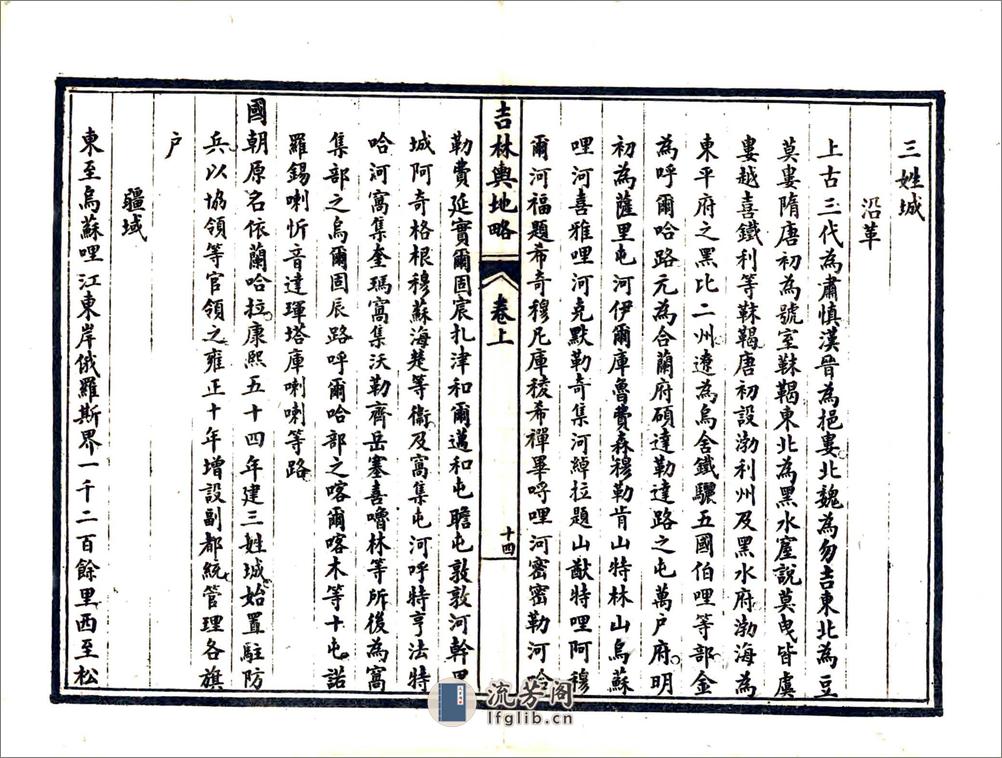 三姓城
沿革
上古三代為肅慎漢晉為挹婁北魏為勿吉東北為豆
莫婁隋唐初為號室靺鞨東北為黑水窟說莫曳皆虞
婁越喜鐵利等靺鞨唐初設渤利州及黑水府渤海為
東平府之黑比二州遼為烏舍鐵驪五國伯哩等部金
為呼爾哈路元為合蘭府碩達勒達路之屯萬戶府明
初為薩里屯河伊爾庫魯費森穆勒肯山特林山烏蘇
哩河喜雅哩河克默勒奇集河綽拉題山猷特哩阿穆
爾河福題希奇穆尼庫稜希禪畢哷哩河密密勒河哈
吉林輿地略
卷上
十四
勒費延實爾固宸扎津和爾邁和屯瞻屯敦敦河幹里
城阿奇格根穆蘇海楚等衞及窩集屯河呼特亨法特
哈河窩集奎瑪窩集沃勒齊岳塞喜嚕林等所後為窩
集部之烏爾固辰路呼爾哈部之喀爾喀木等十屯諾
羅錫喇忻音達琿塔庫喇喇等路
國朝原名依蘭哈拉康熙五十四年建三姓城始置駐防
兵以協領等官領之雍正十年增設副都統管理各旗
戶
疆域
東至烏蘇哩江東岸俄羅斯界一千二百餘里西至松
流芳阁
lfglib.cn